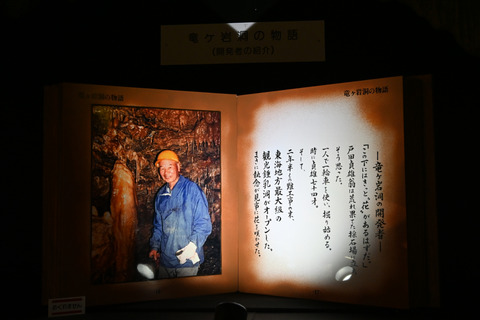 竜ヶ岩洞の物語
(開発者の紹介)
竜ヶ岩洞の物語
竜ヶ岩洞の物語
―竜ヶ岩洞の開発者―
「この下にはきっと"花"があるはずだ。」
戸田貞雄翁は荒れ果てた採石場に立ち
そう思った。
一人で一輪車を使い、掘り始める。
時に貞雄七十四才。
そして、
二年半もの難工事の末、
東海地方最大級の
観光鍾乳洞がオープンした。
まさに執念が見事に花を咲かせた。